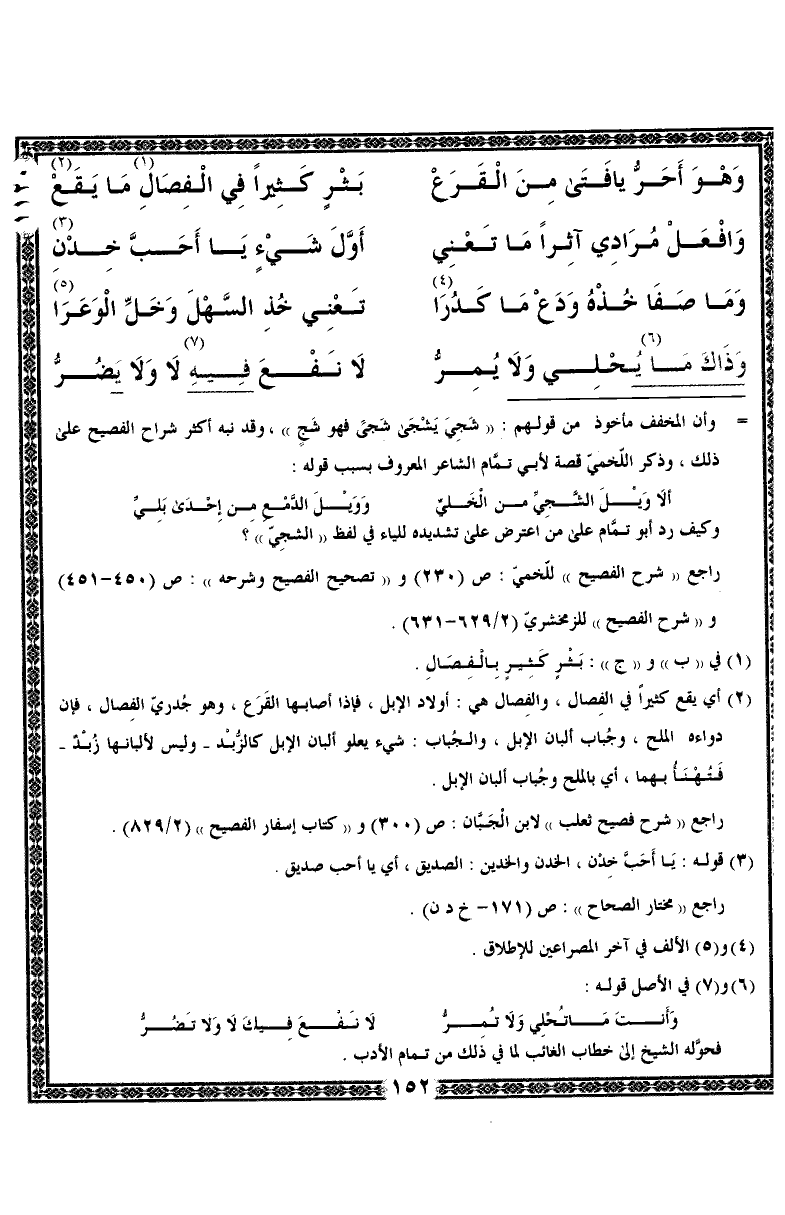 وَهْـوَ أَحَـرُّ يافَـتَىٰ مِـنَ الْـقَـرَعْ بَـثْـرٍ كَـثِـيراً فِي الْـفِصَالِ(١) مَا يَـقَـعْ(٢)
وَافْـعَـلْ مُـرَادِي آثِـراً مَا تَـعْـنِي أَوَّلَ شَـيْءٍ يَـا أَحَـبَّ خِـدْنِ(٣)
وَمَـا صَـفَا خُـذْهُ وَدَعْ مَا كَـدُرَا(٤) تَـعْـنِي خُذِ السَّهْلَ وَخَـلِّ الْوَعَـرَا(٥)
وَذَاكَ مَـا يُـحْلِـي(٦) وَلَا يُـمِـرُّ لَا نَـفْـعَ فِـيـهِ(٧) لَا وَلَا يَـضُـرُّ
= وأن المخفف مأخوذ من قولـهم : « شَجِيَ يَشْجَىٰ شَجىً فهو شَجٍ » ، وقد نبه أكثر شراح الفصيح علىٰ
ذلك ، وذكر اللّخميّ قصة لأبي تـمَّام الشاعر المعروف بسبب قوله :
ألَا وَيْـلَ الشَّـجِيِّ مـن الْخَـلـيِّ وَوَيْـلَ الدَّمْعِ مـن إِحْـدَىٰ بَلِـيِّ
وكيف رد أبو تـمَّام علىٰ من اعترض علىٰ تشديده للياء في لفظ « الشجيّ » ؟
راجع « شرح الفصيح » للّخميّ : ص (٢٣٠) و « تصحيح الفصيح وشرحه » : ص (٤٥٠-٤٥١)
و « شرح الفصيح » للزمخشريّ (٦٢٩/٢-٦٣١) .
(١) في « ب » و « ج » : بَـثْـرٍ كَـثِـيرٍ بِـالْـفِـصَالِ .
(٢) أي يقع كثيراً في الفصال ، والفصال هي : أولاد الإبل ، فإذا أصابـها القَرَع ، وهو جُدريّ الفصال ، فإن
دواءه الملح ، وجُباب ألبان الإبل ، والـجُباب : شيء يعلو ألبان الإبل كالزُّبْد ـ وليس لألبانـها زُبْـدٌ ـ
فَـتُـهْـنَـأُ بـهما ، أي بالملح وجُباب ألبان الإبل .
راجع « شرح فصيح ثعلب » لابن الْجَبَّان : ص (٣٠٠) و « كتاب إسفار الفصيح » (٨٢٩/٢) .
(٣) قولـه : يَـا أَحَبَّ خِدْن ، الخدن والخدين : الصديق ، أي يا أحب صديق .
راجع « مختار الصحاح » : ص (١٧١- خ د ن) .
(٤) و(٥) الألف في آخر المصراعين للإطلاق .
(٦) و(٧) في الأصل قولـه :
وَأَنـتَ مَـاتُـحْلِي وَلَا تُـمِـرُّ لَا نَـفْـعَ فِـيكَ لَا وَلَا تَضُـرُّ
فحوَّله الشيخ إلىٰ خطاب الغائب لما في ذلك من تـمام الأدب .
١٥٢